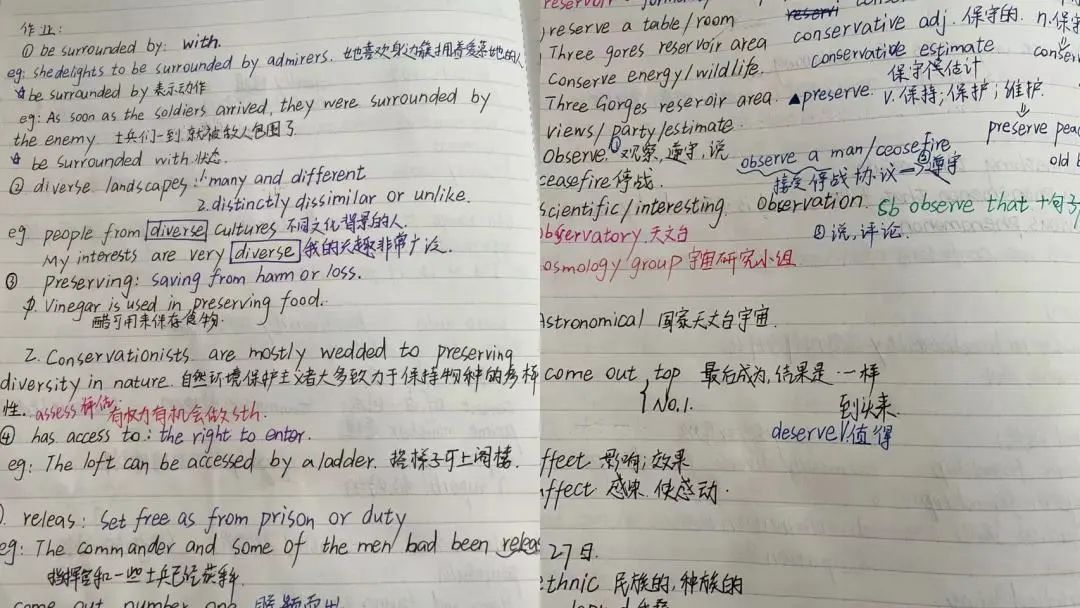 作业:
① be surrounded by: with.
eg: she delights to be surrounded by admirers. 她喜欢身边簇拥着爱慕她的人
☆be surrounded by 表示动作
eg: As soon as the soldiers arrived, they were surrounded by
the enemy 士兵们一到就被敌人包围了.
☆ be surrounded with 状态.
② diverse landscapes: 1. many and different
2. distinctly dissimilar or unlike.
eg people from diverse cultures 不同文化背景的人.
My interests are very diverse 我的兴趣非常广泛.
③ preserving: saving from harm or loss.
1. Vinegar is used in preserving food.
醋可用来保存食物.
2. Conservationists are mostly wedded to preserving
diversity in nature. 自然环境保护主义者大多致力于保持物种的多样
性. assess 评估 有权力有机会做sth.
④ has access to: the right to enter.
eg: The loft can be accessed by a ladder. 搭梯子可上阁楼.
releas: set free as from prison or duty
eg: The commander and some of the men had been releas
指挥官和一些士兵已经获释.
come out number one
reservoir
reserve a table/room
Three gores reservoir area
Conserve energy/wildlife.
Three Gorges reseroir area.
views/party/estimate.
Observe. ①观察, 遵守, 说
ceasefire 停战.
scientific/interesting.
observatory 天文台
osmology group 宇宙研究小组
Astronomical 国家天文台宇宙.
come out top 最后成为, 结果是 一样
No.1.
到头来
deserve V.值得
ffect 影响; 效果
affect 感染. 使感动.
27日.
ethnic 民族的, 种族的
conservative adj. 保守的. n.保守
conservative estimate
保守估计
▲preserve. v. 保持; 保护; 维护.
preserve peac
old b
observe a man/ceasefire
接受停战协议→②遵守
observation. sb observe that +句子
③说, 评论.